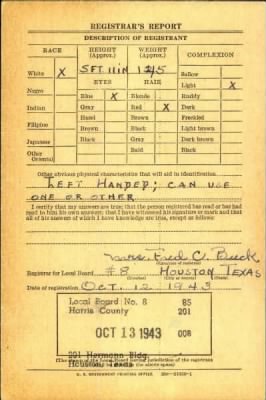 REGISTRAR'S REPORT
DESCRIPTION OF REGISTRANT
RACE HEIGHT (Approx.) WEIGHT (Approx.) COMPLEXION
5FT. 11 IN
EYES HAIR
White X Sallow
Light X
Negro Blue X Blonde Ruddy
Indian Gray Red X Dark
Hazel Brown Freckled
Filipino Brown Black Light brown
Japanese Black Gray Dark brown
Other Oriental Bald Black
Other obvious physical characteristics that will aid in identification
LEFT HANDED; CAN USE
ONE OR OTHER
I certify that my answers are true; that the person registered has read or has had
read to him his own answers; that I have witnessed his signature or mark and that
all of his answers of which I have knowledge are true, except as follows:
Mrs. Fred C. Buck
(Signature of registrar)
Registrar for Local Board #8 HOUSTON TEXAS
(Number) (City or county) (State)
Date of registration OCT. 12 1943
Local Board No. 8 85
Harris County 201
OCT 13 1943 008
201 Hermann Bldg.
Houston Texas
U. S. GOVERNMENT PRINTING OFFICE